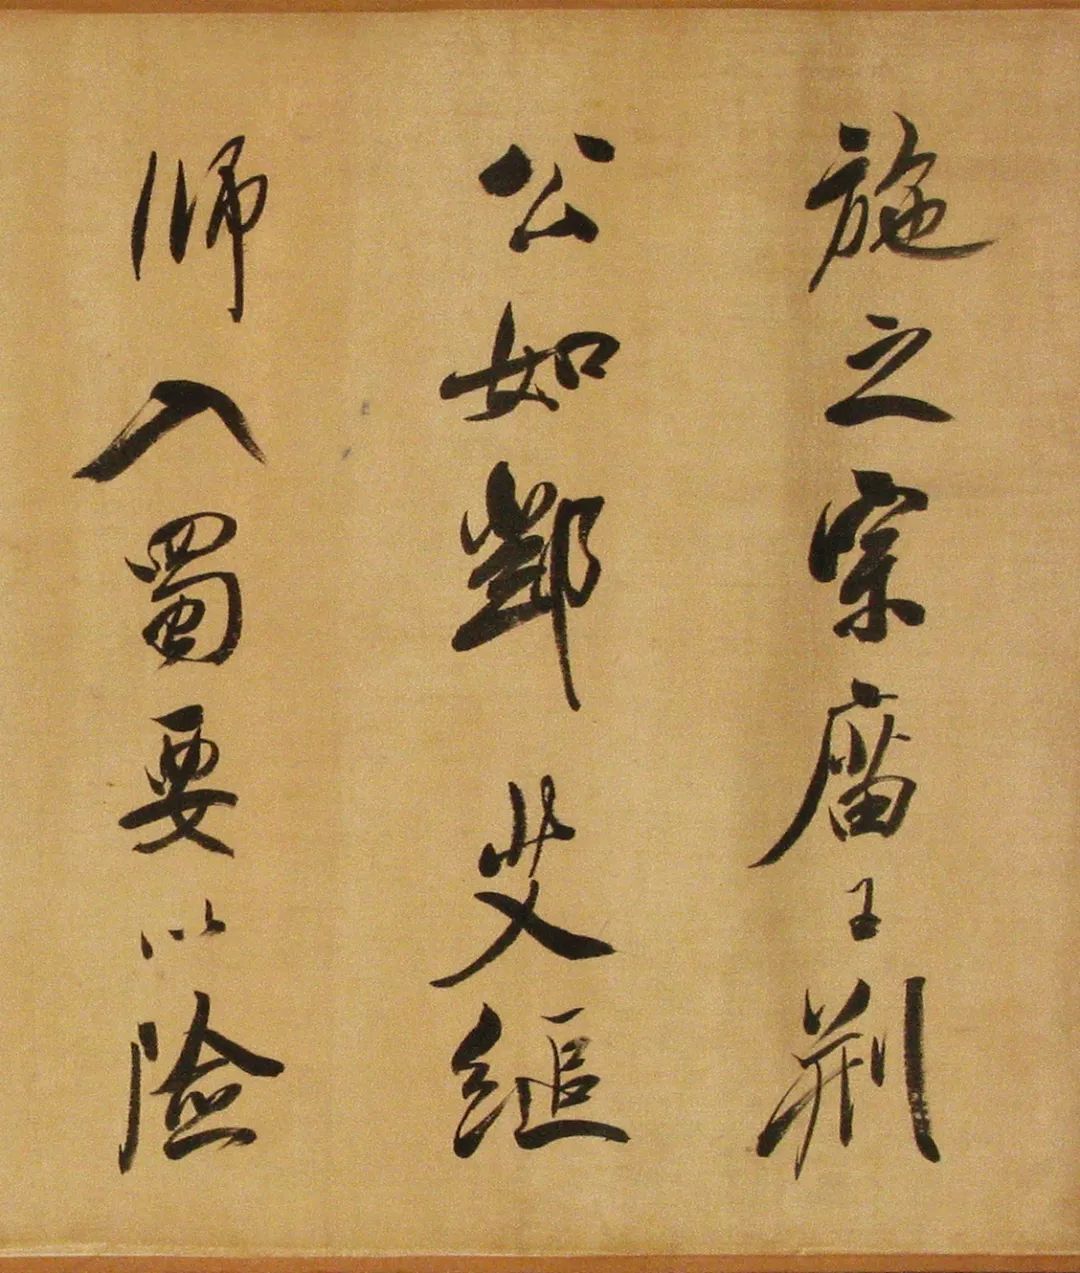 施之宗庿王荊
公如鄧艾縋
師入蜀要以險